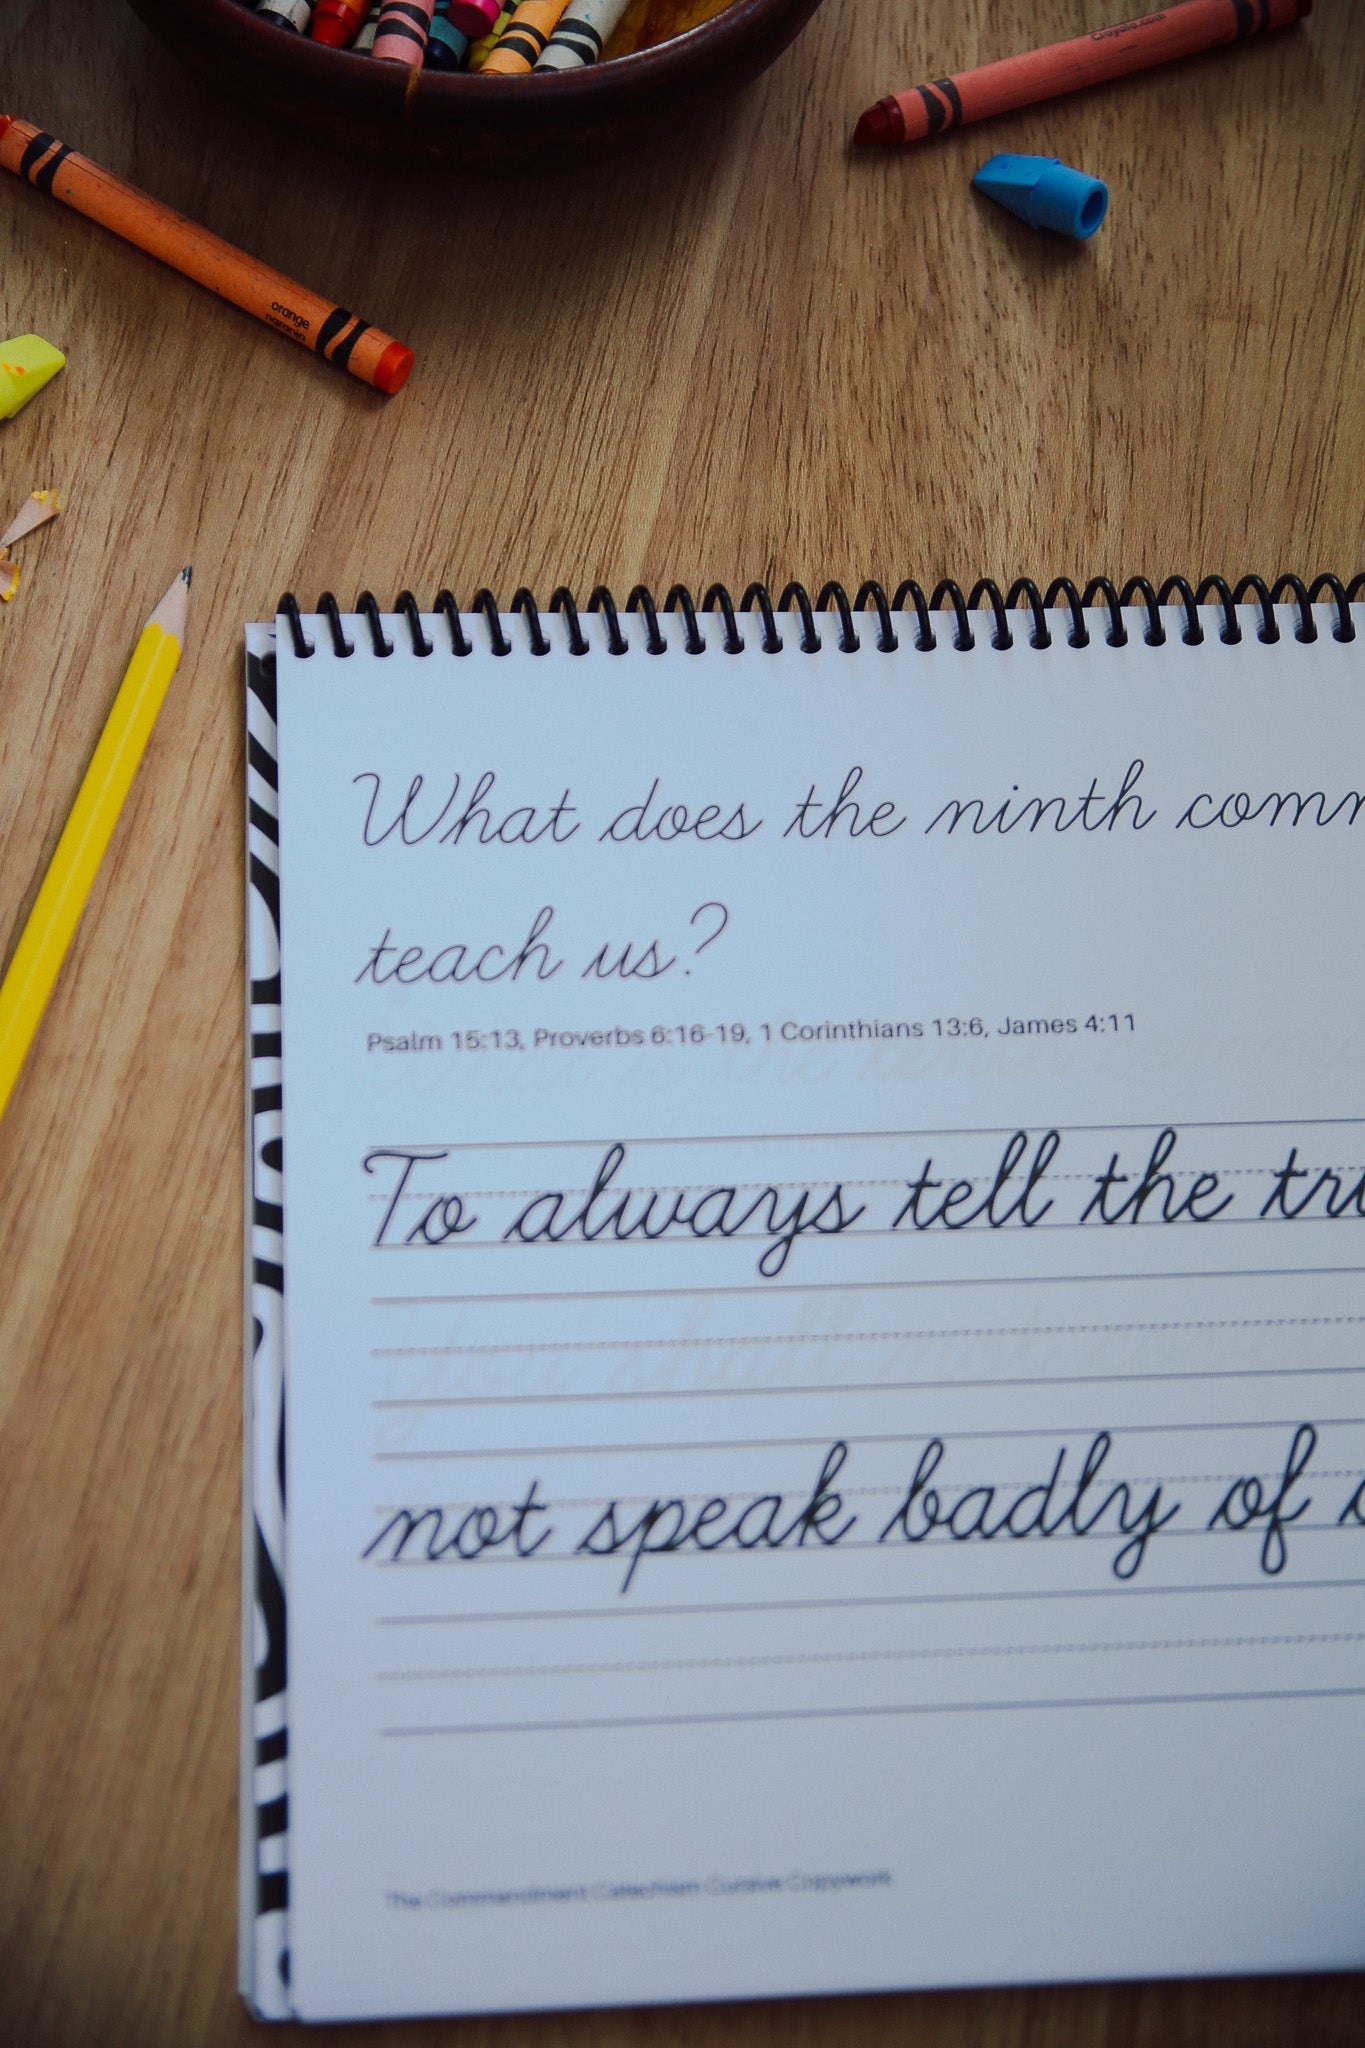 Crayola.com
orange
naranja
What does the ninth comm
teach us?
Psalm 15:13, Proverbs 6:16-19, 1 Corinthians 13:6, James 4:11
To always tell the tru
not speak badly of o
The Commandment Catechism Cursive Copywork